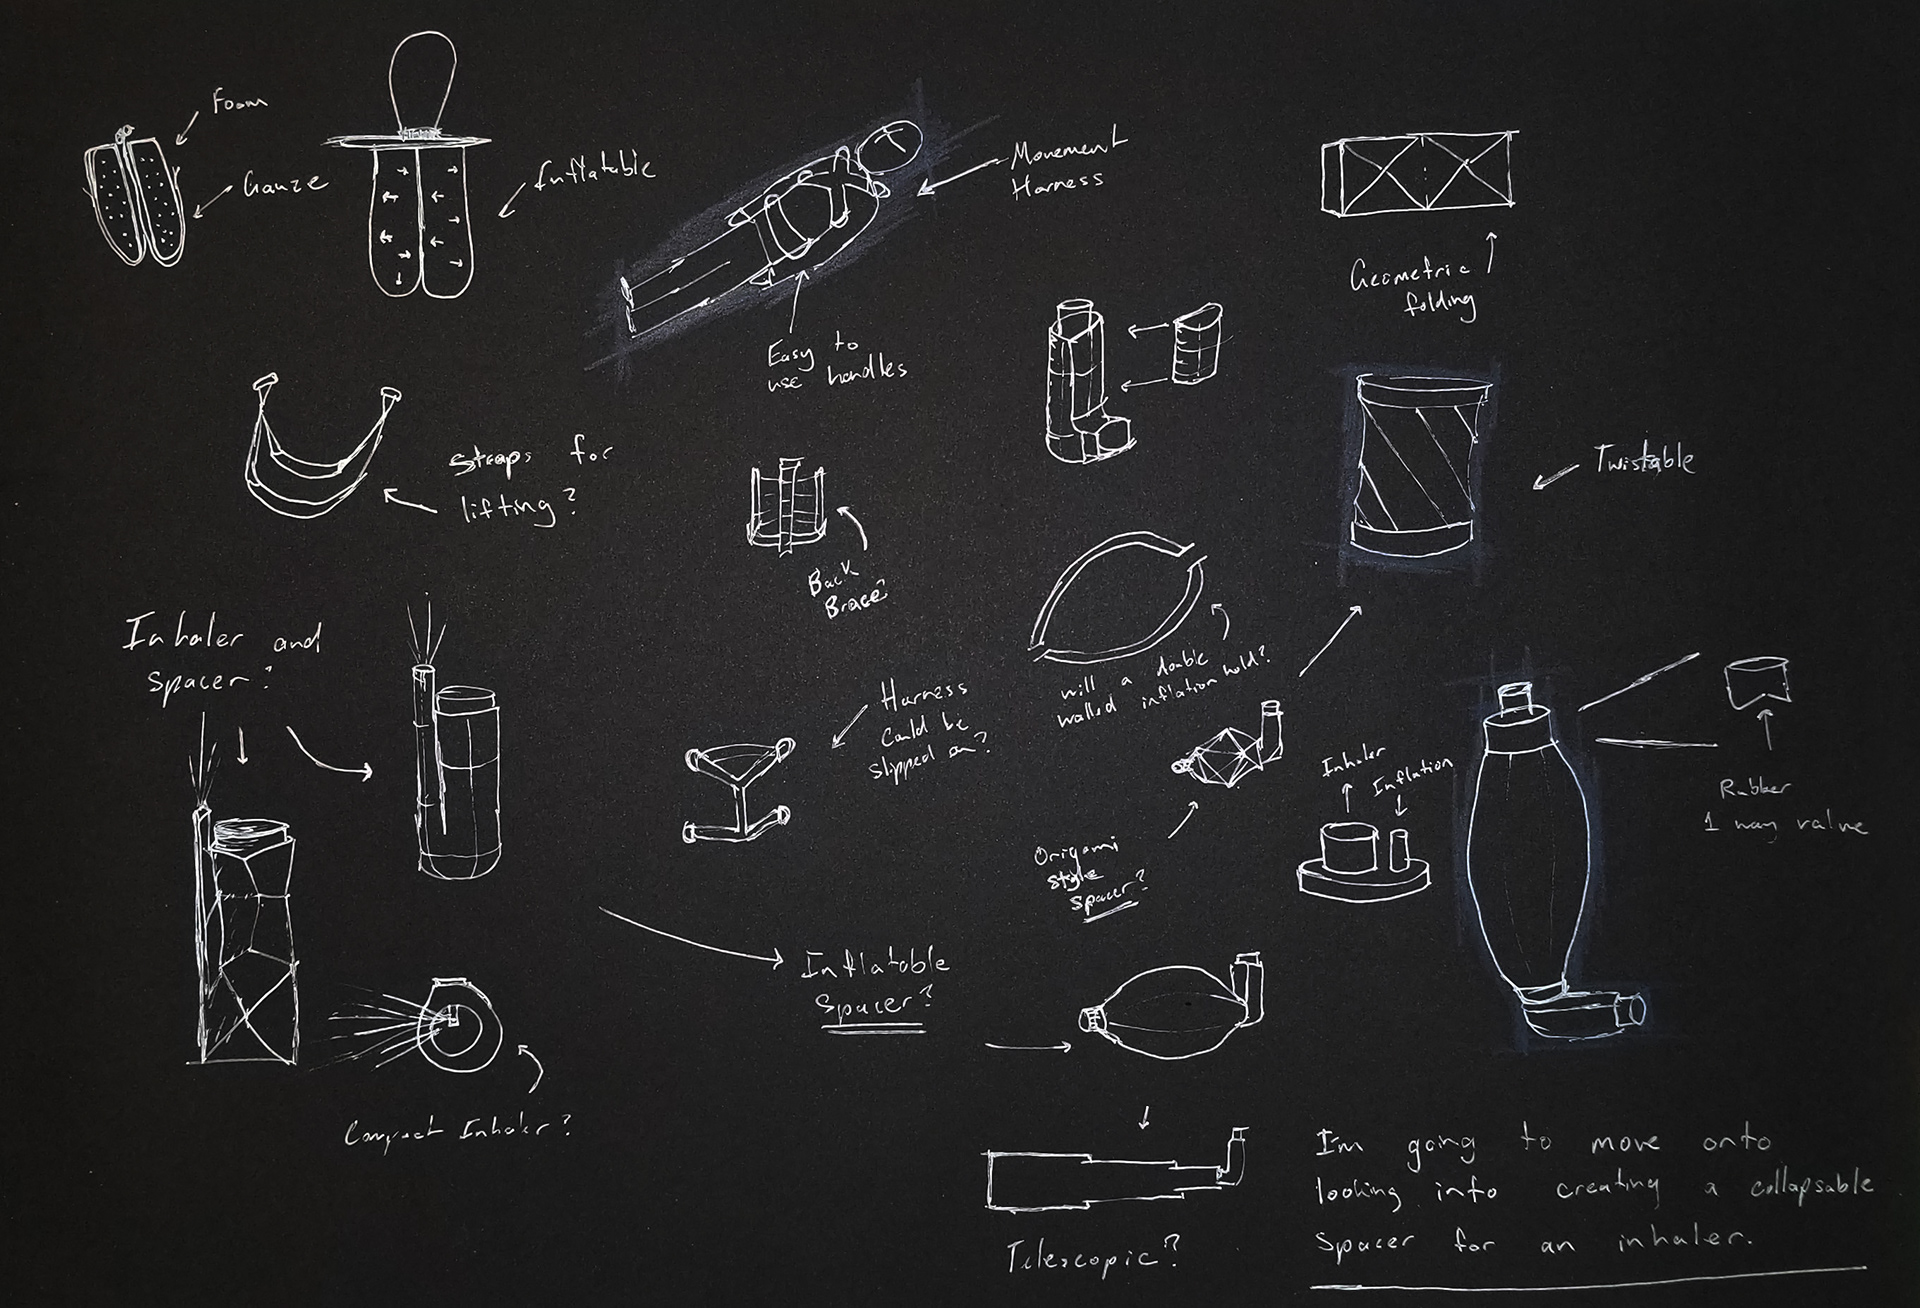 Foam
Gauze
Inflatable
Movement
Harness
Easy to
use handles
Geometric
folding
Straps for
lifting?
Back
Brace?
Twistable
will a double
walled inflation hold?
Inhaler and
Spacer?
Harness
could be
slipped on?
Origami
style
spacer?
Inhaler
Inflation
Rubber
1 way valve
Inflatable
Spacer?
Compact Inhaler?
Telescopic?
I'm going to move onto
looking into creating a collapsable
Spacer for an inhaler.